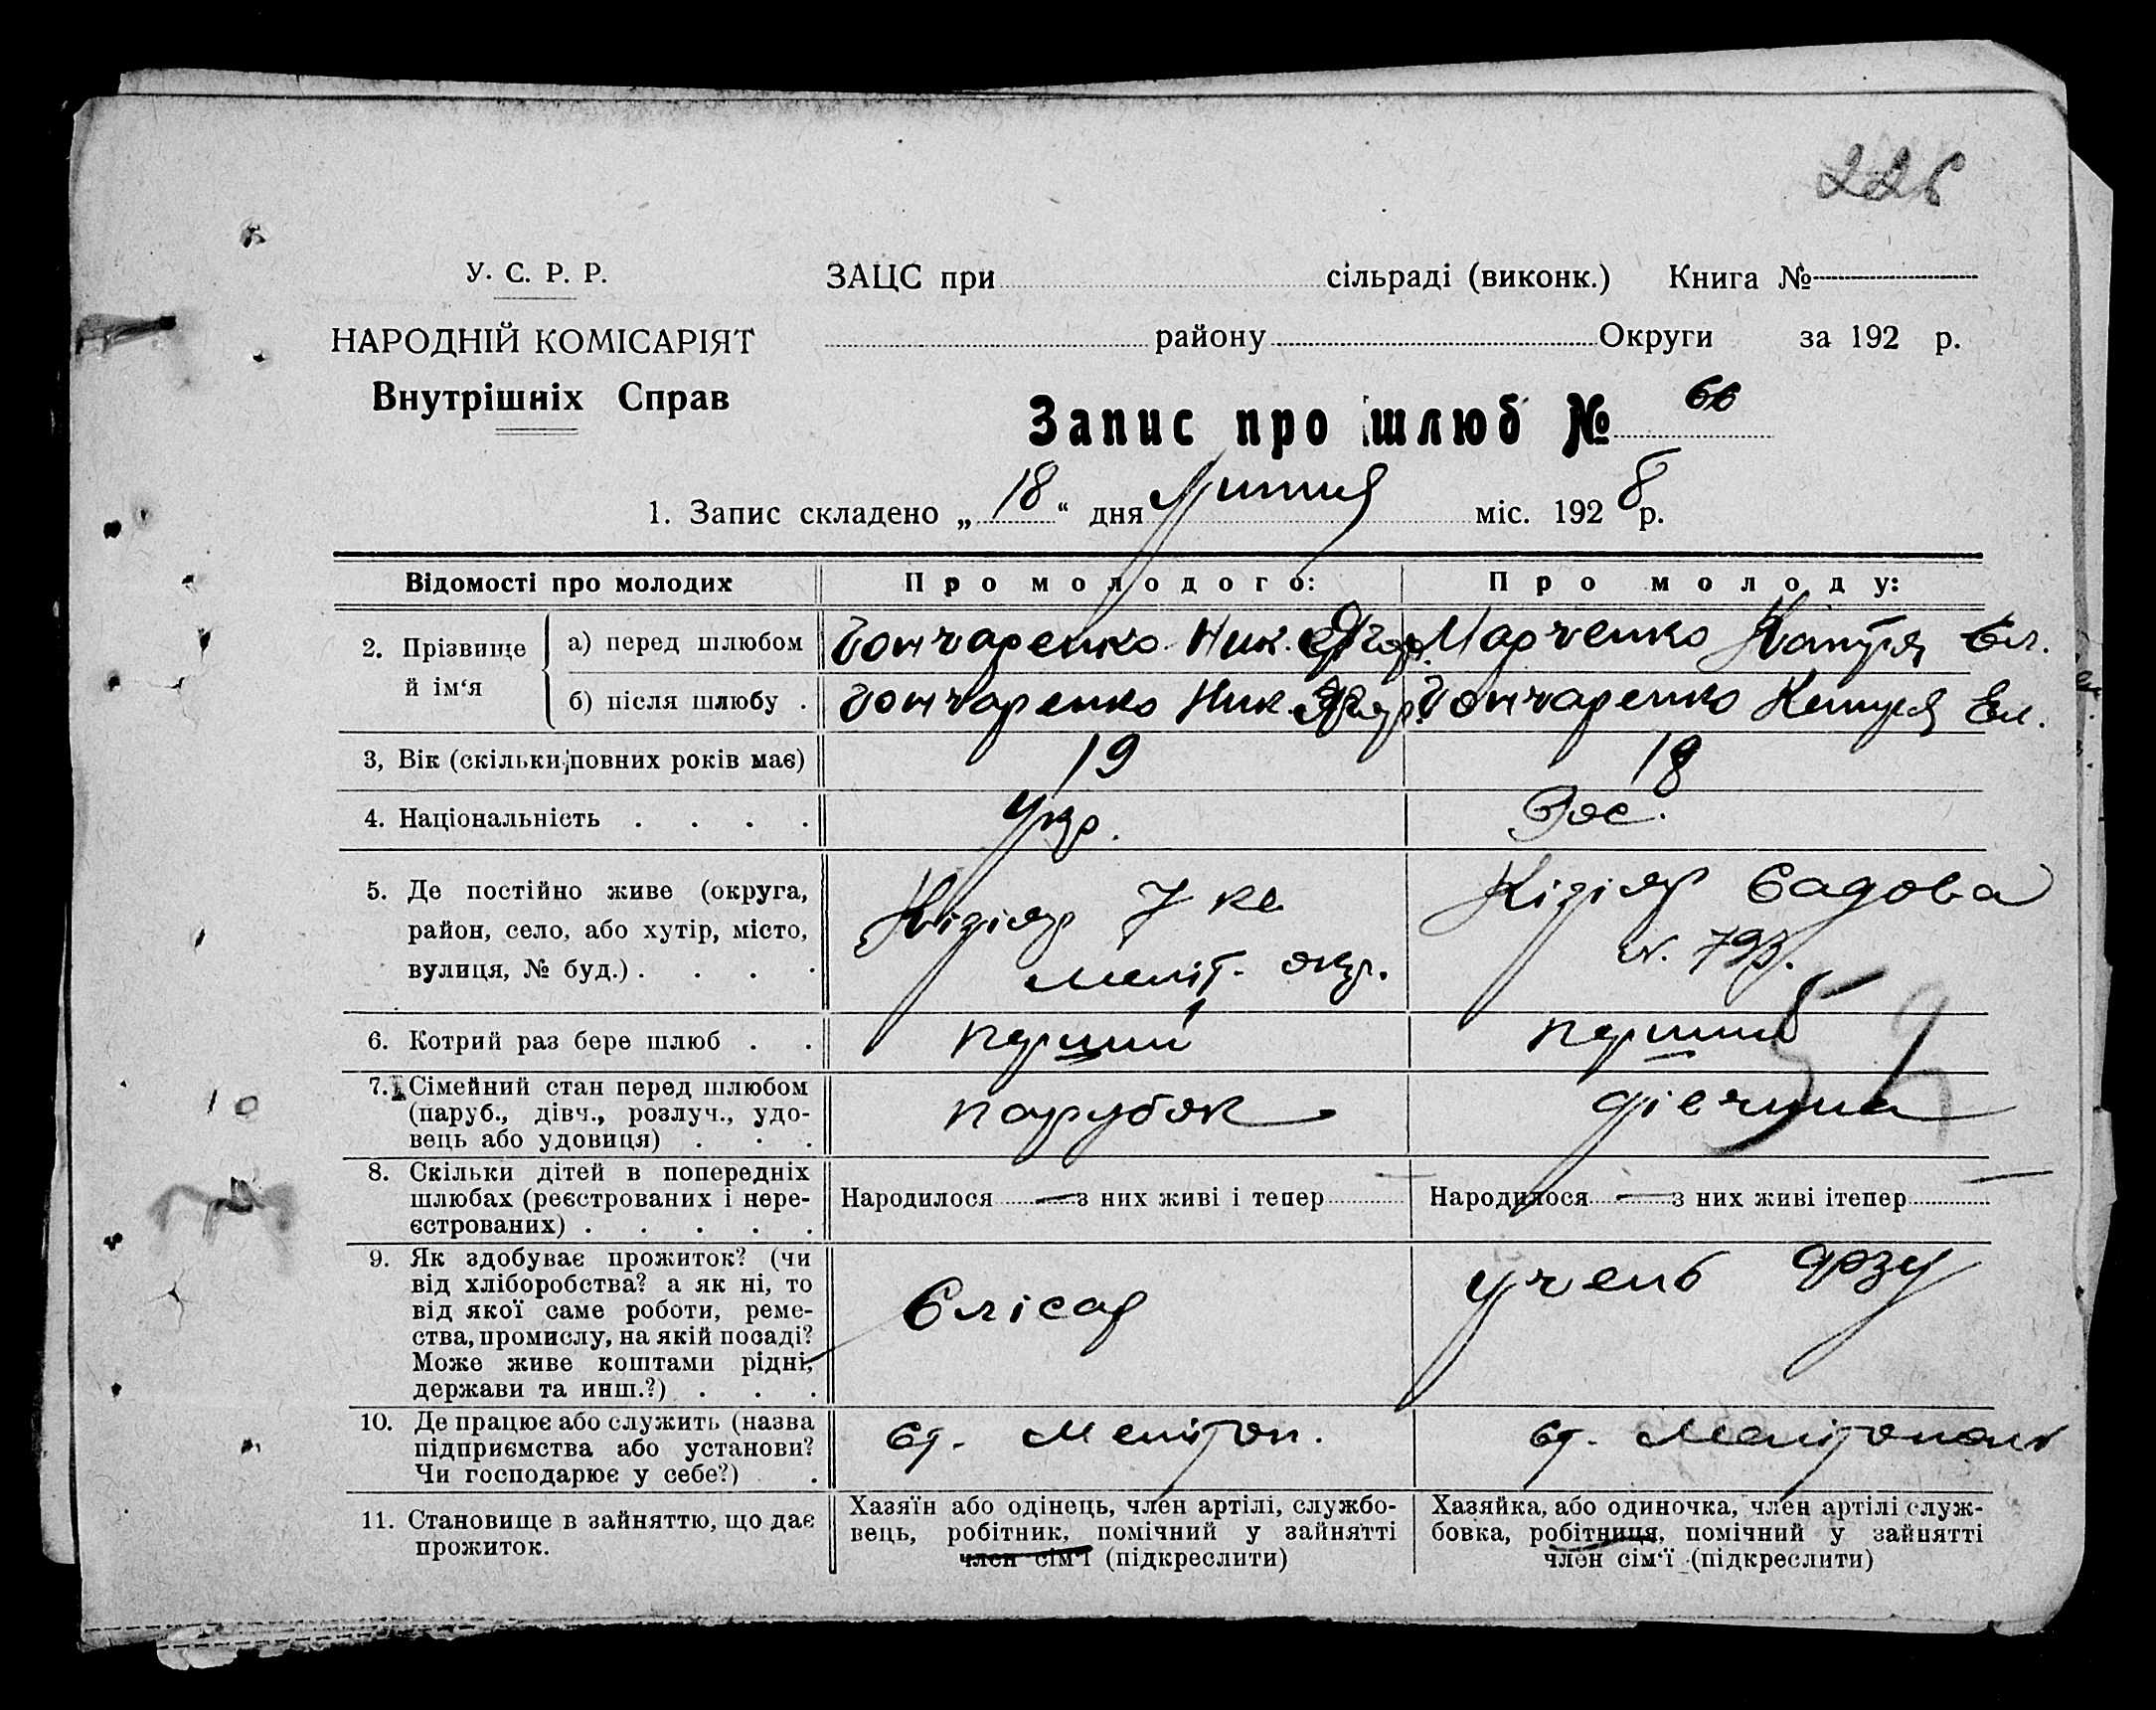 226
У. С. Р. Р.
НАРОДНІЙ КОМІСАРІЯТ
Внутрішніх Справ
ЗАЦС при сільраді (виконк.) Книга №
району Округи за 192 р.
Запис про шлюб № 66
1. Запис складено „ 18 “ дня Липня міс. 192 8 р.
Відомості про молодих
Про молодого:
Про молоду:
2. Прізвище й ім‘я
а) перед шлюбом
Гончаренко Ник.
Марченко Катря Єв.
б) після шлюбу .
Гончаренко Ник.
Гончаренко Катря Єв.
3, Вік (скільки повних років має)
19
18
4. Національність . . . .
Укр.
Рос.
5. Де постійно живе (округа,
район, село, або хутір, місто,
вулиця, № буд.) . . . .
Кізіяр
Меліт. окр.
Кізіяр Садова
6. Котрий раз бере шлюб . .
перший
перший
7. Сімейний стан перед шлюбом
(паруб., дівч., розлуч., удо-
вець або удовиця) . . .
парубок
дівчина
8. Скільки дітей в попередніх
шлюбах (реєстрованих і нере-
єстрованих) . . . . .
Народилося — з них живі і тепер —
Народилося — з них живі ітепер —
9. Як здобуває прожиток? (чи
від хліборобства? а як ні, то
від якої саме роботи, реме-
ства, промислу, на якій посаді?
Може живе коштами рідні,
держави та инш.?) . . .
Слісар
учень
10. Де працює або служить (назва
підприємства або установи?
Чи господарює у себе?) .
ст. Мелітоп.
ст. Мелітополь
11. Становище в зайняттю, що дає
прожиток.
Хазяїн або одінець, член артілі, службо-
вець, робітник, помічний у зайнятті
член сім‘ї (підкреслити)
Хазяйка, або одиночка, член артілі служ-
бовка, робітниця, помічний у зайнятті
член сім‘ї (підкреслити)